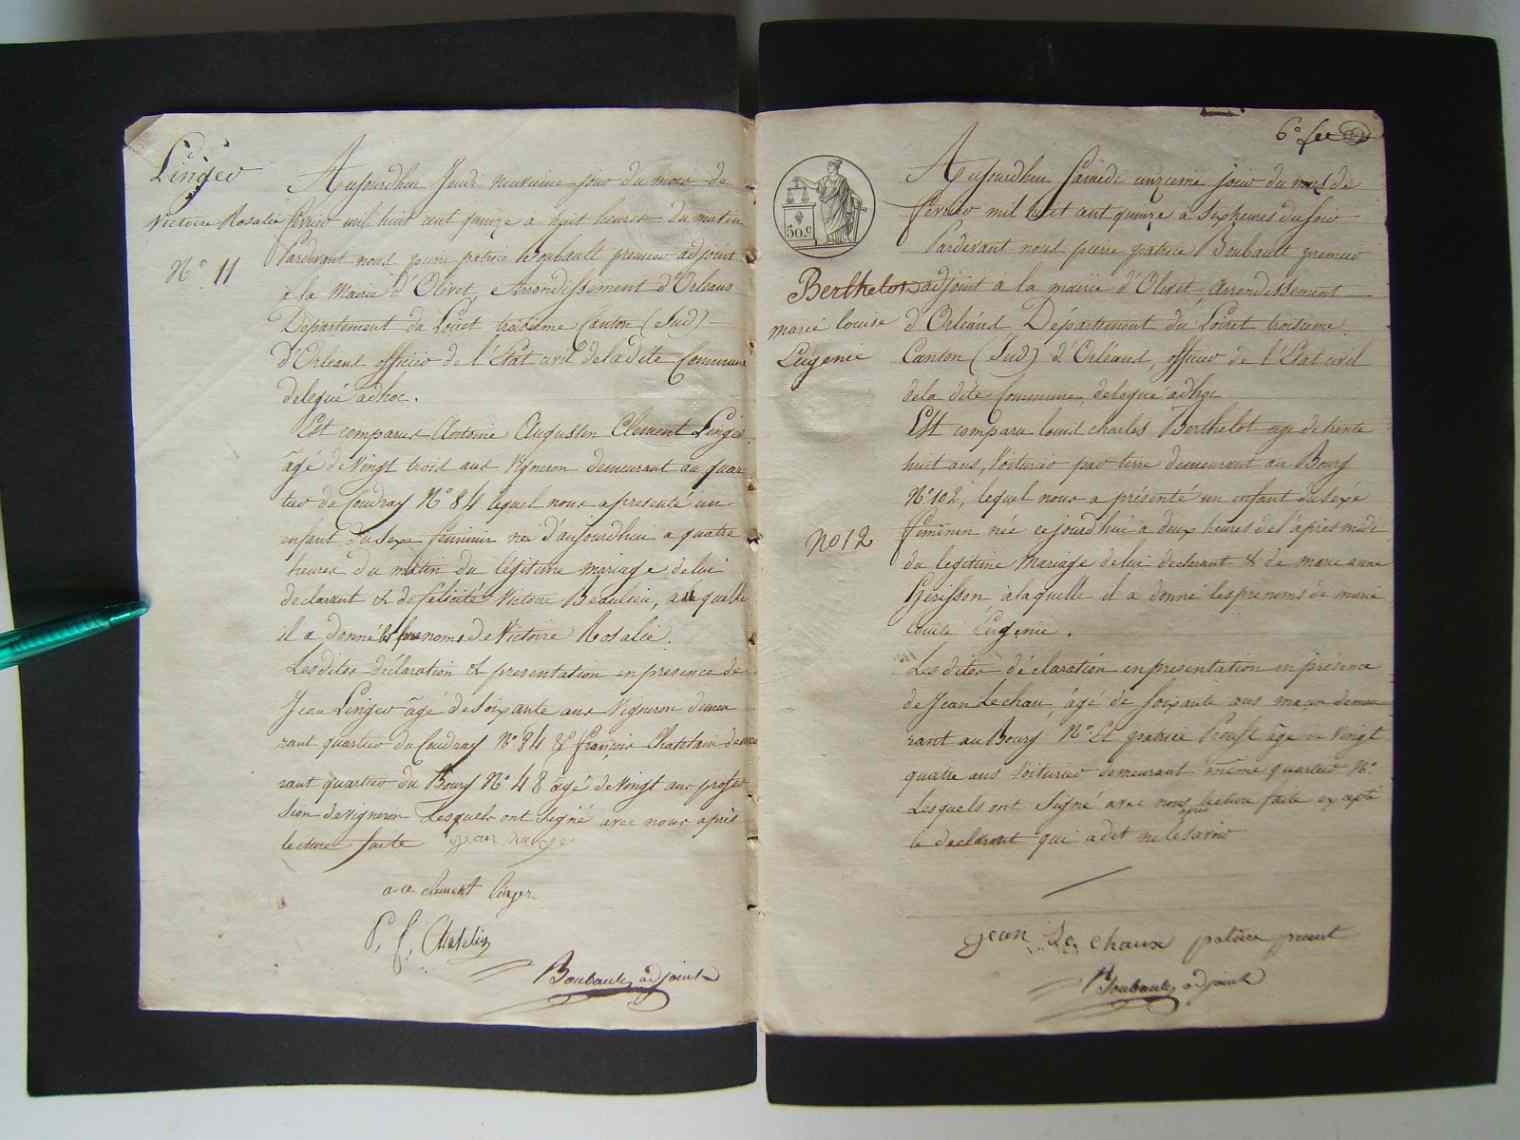 Linger
Victoire Rosalie
N° 11
Aujourdhui Jeudi neuvieme jour du mois de
fevrier mil huit cent quinze a huit heures du matin
Pardevant nous pierre patrice Boubault premier adjoint
a la Mairie d'Olivet, Arrondissement d'Orléans
Département du Loiret troisieme Canton (Sud)
d'Orléans officier de l'Etat civil de la dite Commune
delegué adhoc.
Est comparu Antoine Augustin Clement Linger
âgé de Vingt trois ans Vigneron demeurant au quar
tier du Coudray N° 84 lequel nous a presenté un
enfant du sexe féminin née d'aujourdhui a quatre
heures du matin du légitime mariage de lui
declarant & de félicité Victoire Beaulieu, a laquelle
il a donné les prenoms de Victoire Rosalie.
Les dites déclaration et presentation en presence de
Jean Linger âgé de soixante ans Vigneron demeu
rant quartier du Coudray N° 84 & françois Chatelain demeu
rant quartier du Bourg N° 48 âgé de Vingt ans profes
sion de vigneron Lesquels ont signé avec nous après
lecture faite jean
a a clement linger
P. f. Chatelin
Boubault adjoint
6e fet
50 c
Berthelot
marie louise
Eugenie
N° 12
Aujourdhui Samedi unzieme jour du mois de
fevrier mil huit cent quinze a six heures du soir
Pardevant nous pierre patrice Boubault premier
adjoint à la mairie d'Olivet, Arrondissement
d'Orléans, Département du Loiret troisieme
Canton (Sud) d'Orléans, officier de l'Etat civil
de la dite Commune, delegué adhoc
Est comparu louis charles Berthelot age de trente
huit ans, Voiturier par terre demeurant au Bourg
N° 102, lequel nous a présenté un enfant du sexe
féminin née ce jourd'hui a deux heures de l'après midi
du legitime Mariage de lui declarant & de marie anne
Herisson, à laquelle il a donné les prenoms de marie
louise Eugenie.
Les dites déclaration en presentation en présence
de Jean Lechau, âgé de soixante ans maçon demeu
rant au Bourg N° et patrice Proust âgé de Vingt
quatre ans Voiturier demeurant même quartier N°
Lesquels ont signé avec nous après lecture faite excepté
le declarant qui a dit ne le savoir
jean Le chaux patrice proust
Boubault adjoint